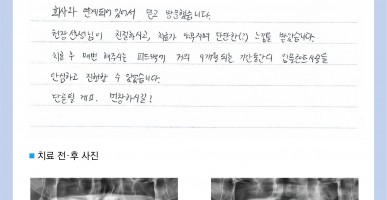 회사와 연계되어 있어서 믿고 방문했습니다.
원장선생님이 친절하시고, 치료가 꼬무지며 단단한(?) 느낌을 받았습니다.
치료 후 매번 해주시는 피드백이 거의 9개월 되는 기간동안의 임플란트시술을
안심하고 진행할 수 있었습니다.
단골될 게요. 번창하시길!
■ 치료 전·후 사진